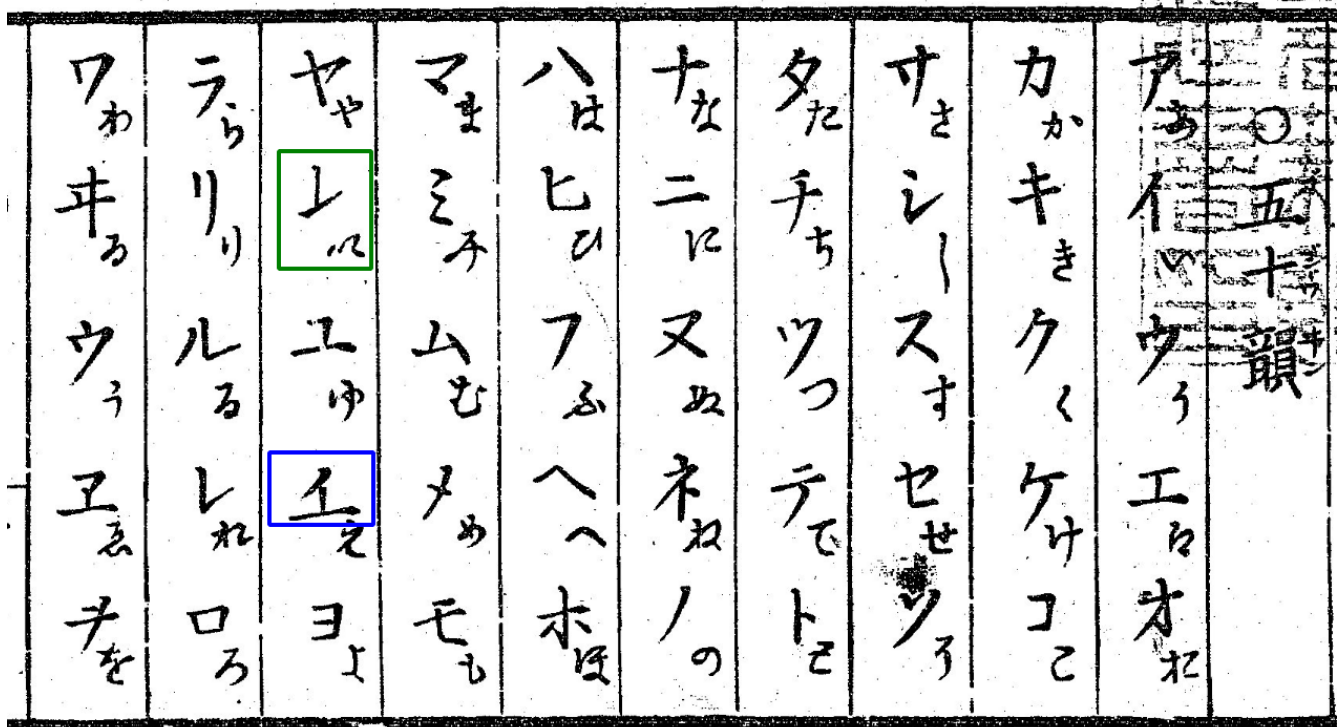 ○五十韻
アあイいウうエオお
カかキきクくケけコこ
サさシしスすセせソそ
タたチちツつテてトと
ナなニにヌぬネねノの
ハはヒひフふヘへホほ
マまミみムむメめモも
ヤや𛄠𛀆ユゆ𛄡えヨよ
ラらリりルるレれロろ
ワわヰゐウうヱゑヲを